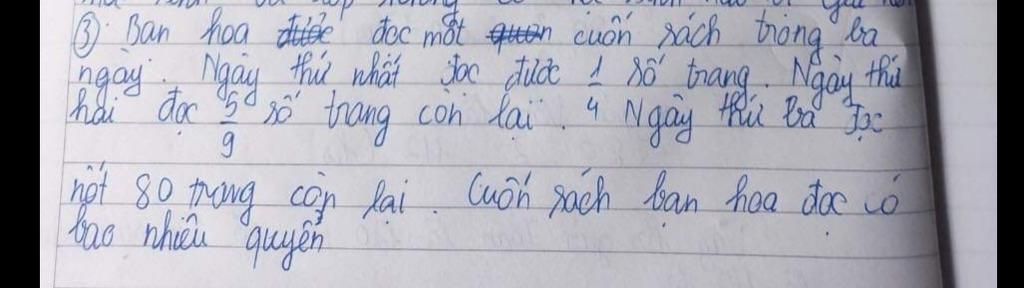 ③ Bạn hoa được đọc một quyn cuốn sách trong ba
ngày. Ngày thứ nhất đọc được 1/4 số trang. Ngày thứ
hai đọc 5/9 số trang còn lại. Ngày thứ ba đọc
nốt 80 trang còn lại. Cuốn sách bạn hoa đọc có
bao nhiêu quyển